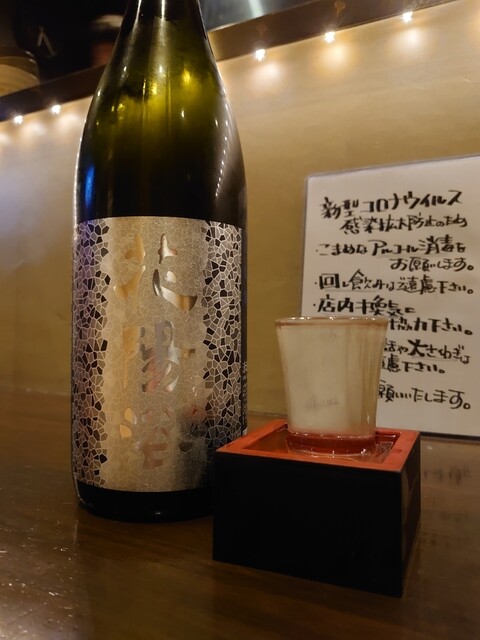 新型コロナウイルス
感染拡大防止のため
・こまめなアルコール消毒を
お願いします。
・回し飲みはご遠慮下さい。
・店内換気に
協力下さい。
話や大さわぎは
慮下さい。
願いいたします。